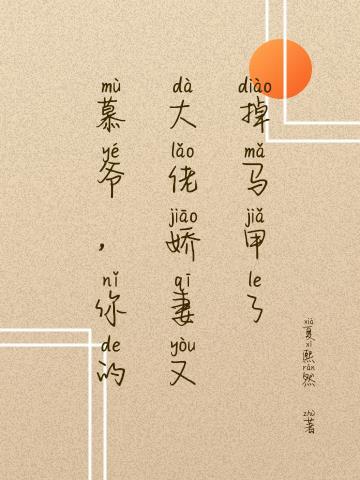 mù yé nǐ de
慕爷，你的
dà lǎo jiāo qī yòu
大佬娇妻又
diào mǎ jiǎ le
掉马甲了
xià xī rán zhù
夏熙然 著